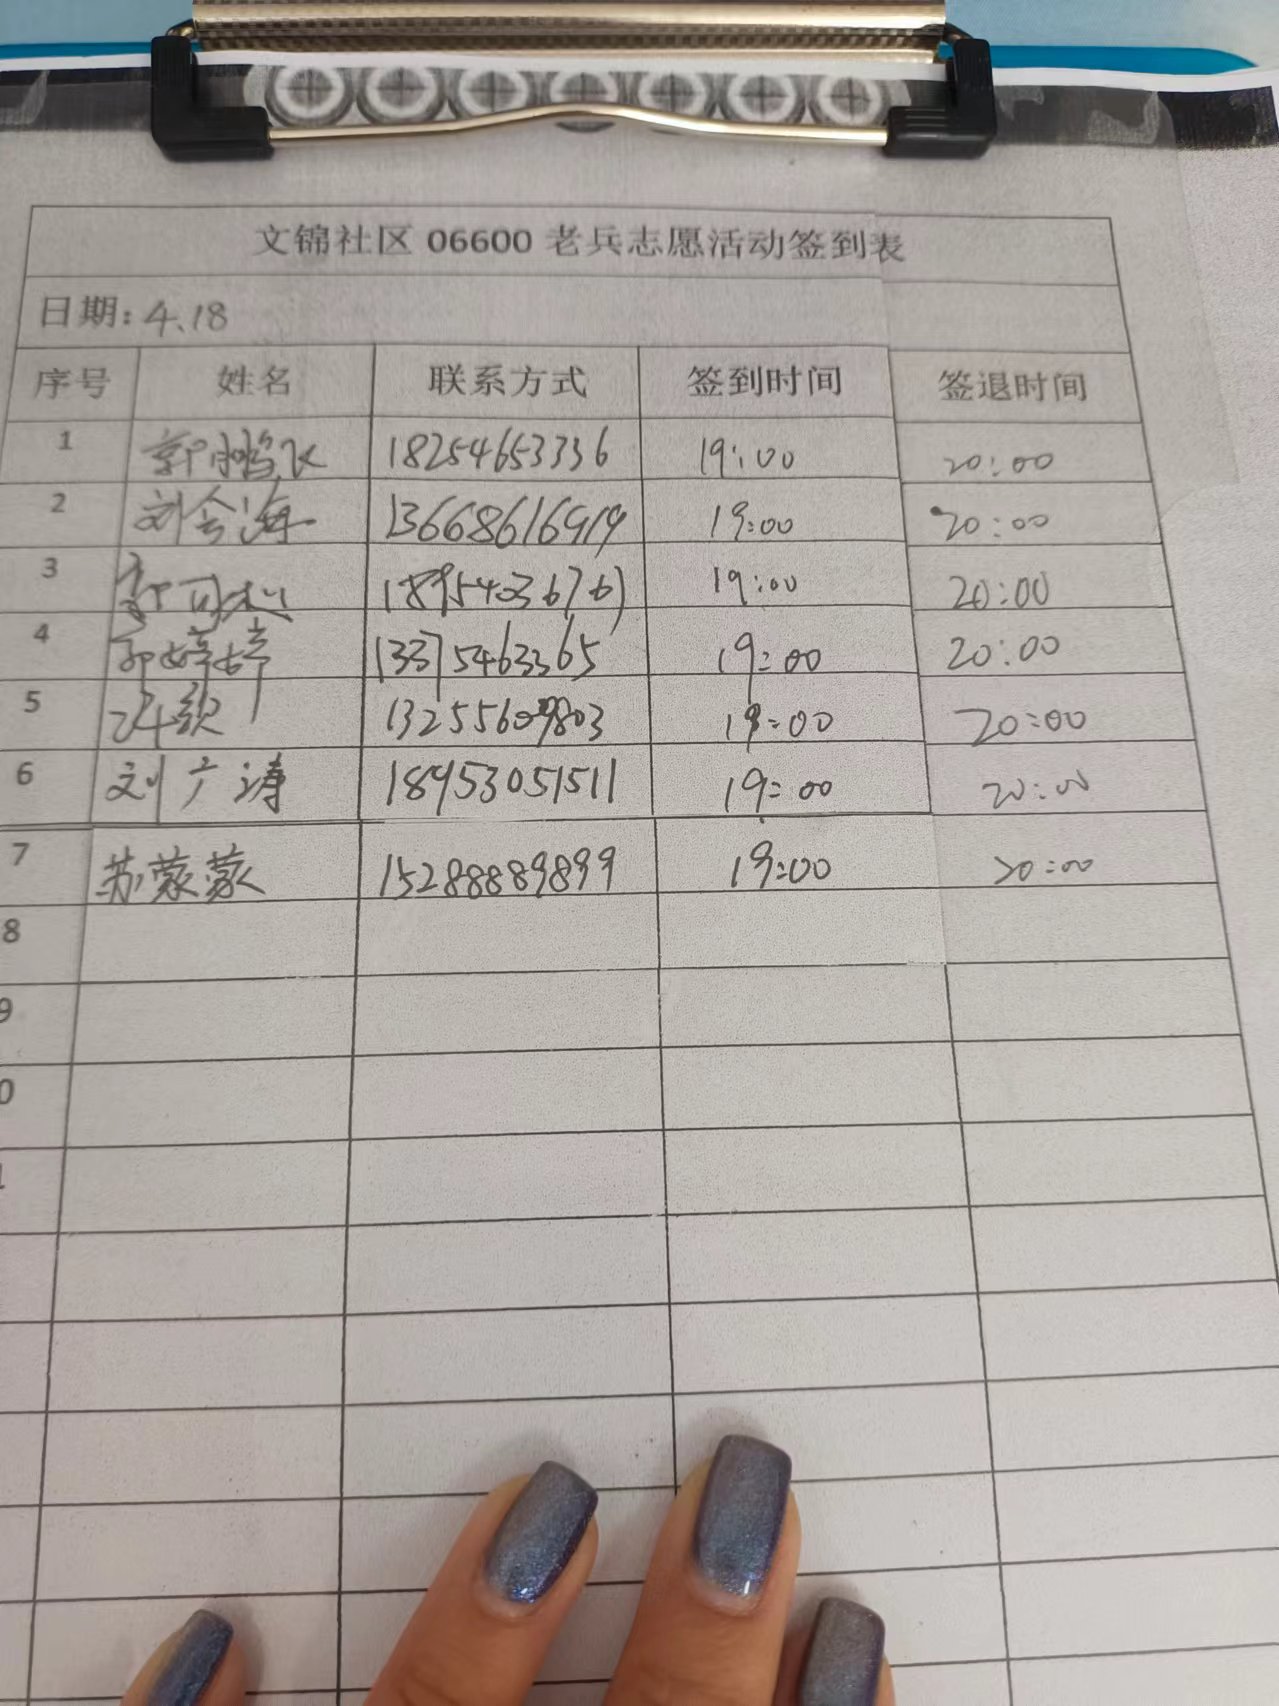 文锦社区 06600 老兵志愿活动签到表
日期: 4.18
序号 姓名 联系方式 签到时间 签退时间
1 郭鹏飞 18254653336 19:00 20:00
2 刘会海 13668616919 19:00 20:00
3 18954036761 19:00 20:00
4 郭婷婷 13375463365 19:00 20:00
5 13255609803 19:00 20:00
6 刘广涛 18953051511 19:00 20:00
7 苏蒙蒙 15288889899 19:00 20:00
8
9
0
1